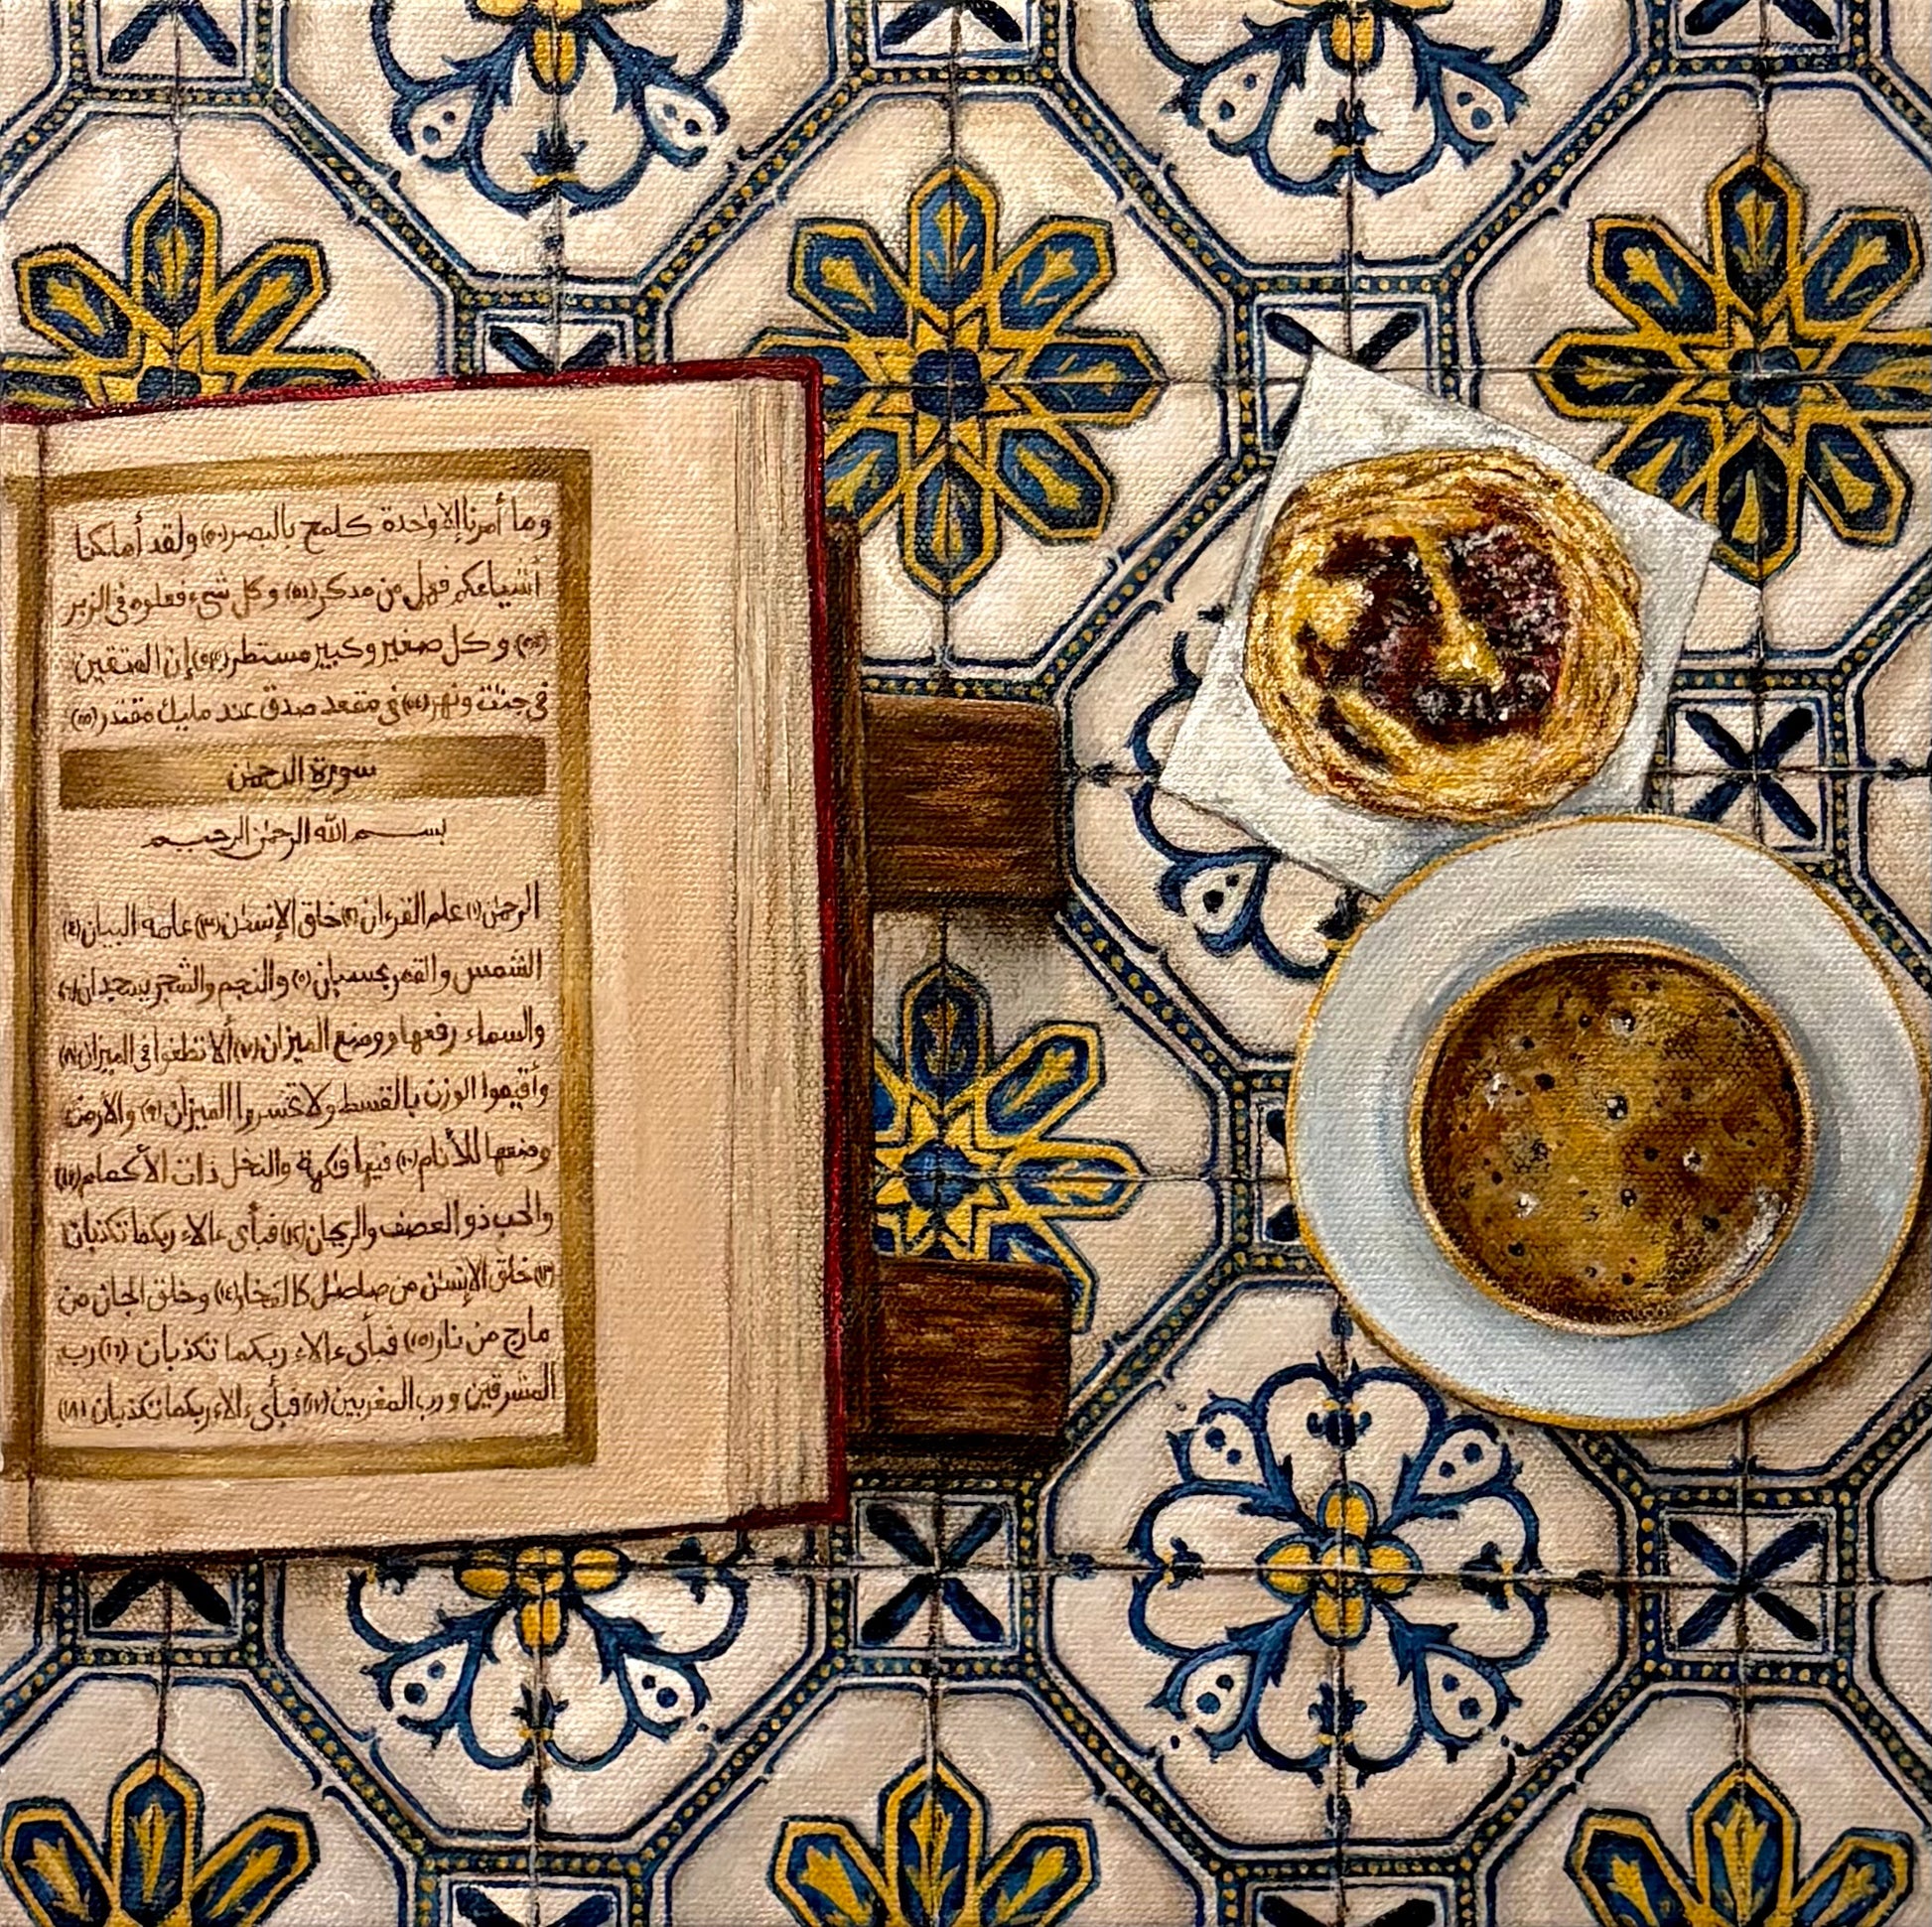 وما أمرنا إلا وٰحدة كلمح بالبصر (٥٠) ولقد أهلكنا
أشياعكم فهل من مدكر (٥١) وكل شيء فعلوه في الزبر
(٥٢) وكل صغير وكبير مستطر (٥٣) إن المتقين
في جنٰت ونهر (٥٤) في مقعد صدق عند مليك مقتدر (٥٥)
سورة الرحمٰن
بسم الله الرحمٰن الرحيم
الرحمٰن (١) علم القرءان (٢) خلق الإنسٰن (٣) علمه البيان (٤)
الشمس والقمر بحسبان (٥) والنجم والشجر يسجدان (٦)
والسماء رفعها ووضع الميزان (٧) ألا تطغوا في الميزان (٨)
وأقيموا الوزن بالقسط ولا تخسروا الميزان (٩) والأرض
وضعها للأنام (١٠) فيها فٰكهة والنخل ذات الأكمام (١١)
والحب ذو العصف والريحان (١٢) فبأي ءالاء ربكما تكذبان
(١٣) خلق الإنسٰن من صلصٰل كالفخار (١٤) وخلق الجان من
مارج من نار (١٥) فبأي ءالاء ربكما تكذبان (١٦) رب
المشرقين ورب المغربين (١٧) فبأي ءالاء ربكما تكذبان (١٨)